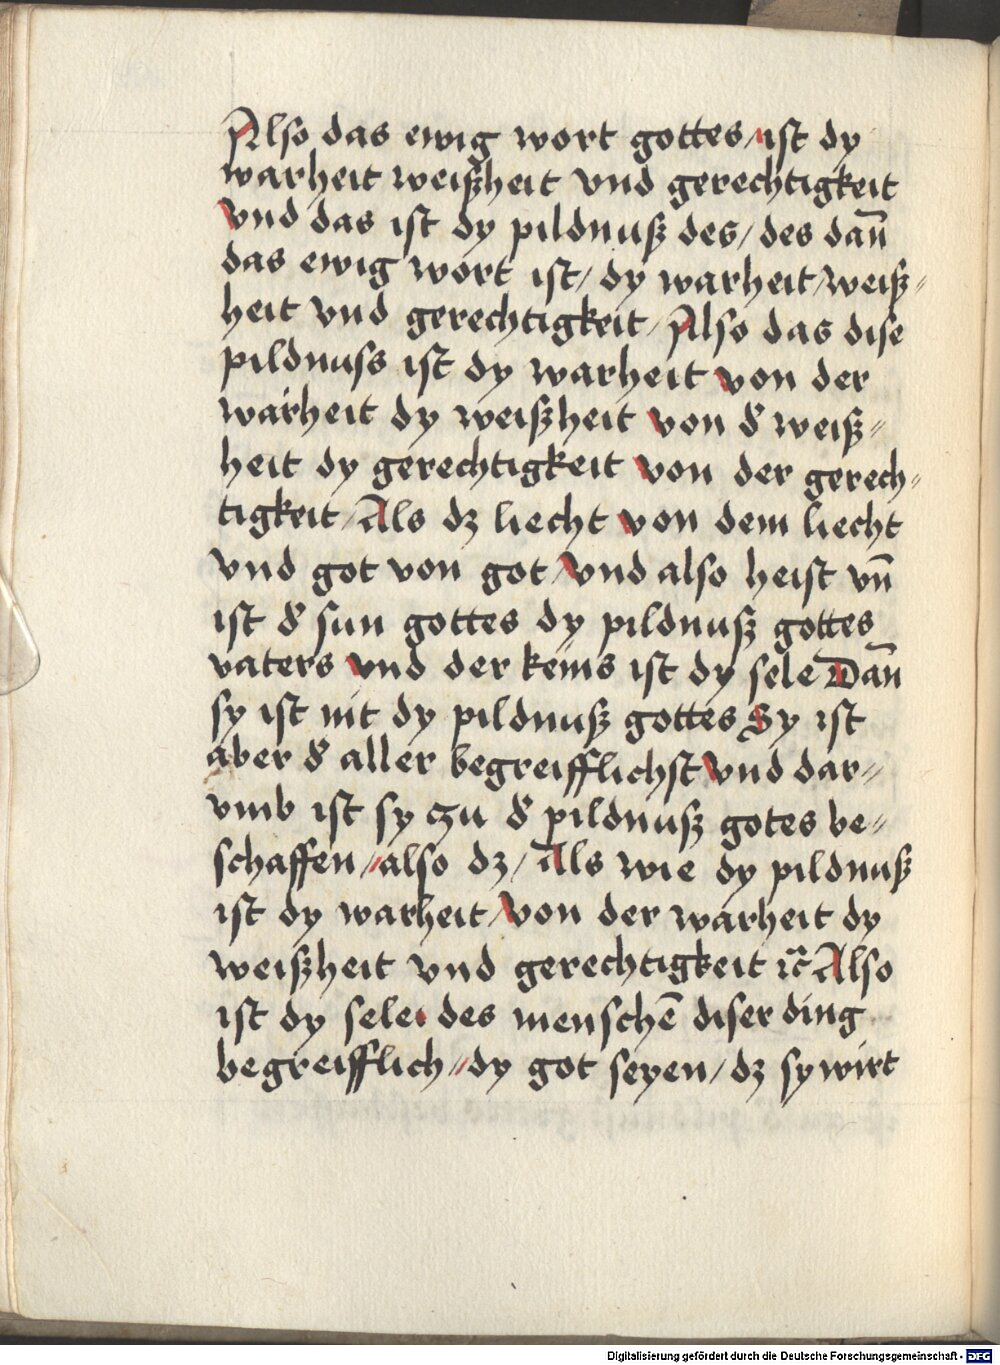 Also das ewig wort gottes / ist dy
warheit weißheit vnd gerechtigkeit
Vnd das ist dy pildnuß des / des dan̄
das ewig wort ist / dy warheit / weiß⸗
heit vnd gerechtigkeit / Also das dise
pildnuss ist dy warheit von der
warheit dy weißheit von d̕ weiß⸗
heit dy gerechtigkeit von der gerech⸗
tigkeit / Als dz liecht von dem liecht
vnd got von got / Vnd also heist vn̄
ist d̕ sun gottes dy pildnuß gottes
vaters vnd der keins ist dy sele Dan̄
sy ist nit dy pildnuß gottes Sy ist
aber d̕ aller begreifflichst Vnd dar⸗
vmb ist sy czu d̕ pildnuß gotes be⸗
schaffen // also dz / Als wie dy pildnuß
ist dy warheit / Von der warheit dy
weißheit vnd gerechtigkeit ⁊c̃ Also
ist dy sele des menschē diser ding
begreifflich // dy got seyen / dz sy wirt
Digitalisierung gefördert durch die Deutsche Forschungsgemeinschaft - DFG